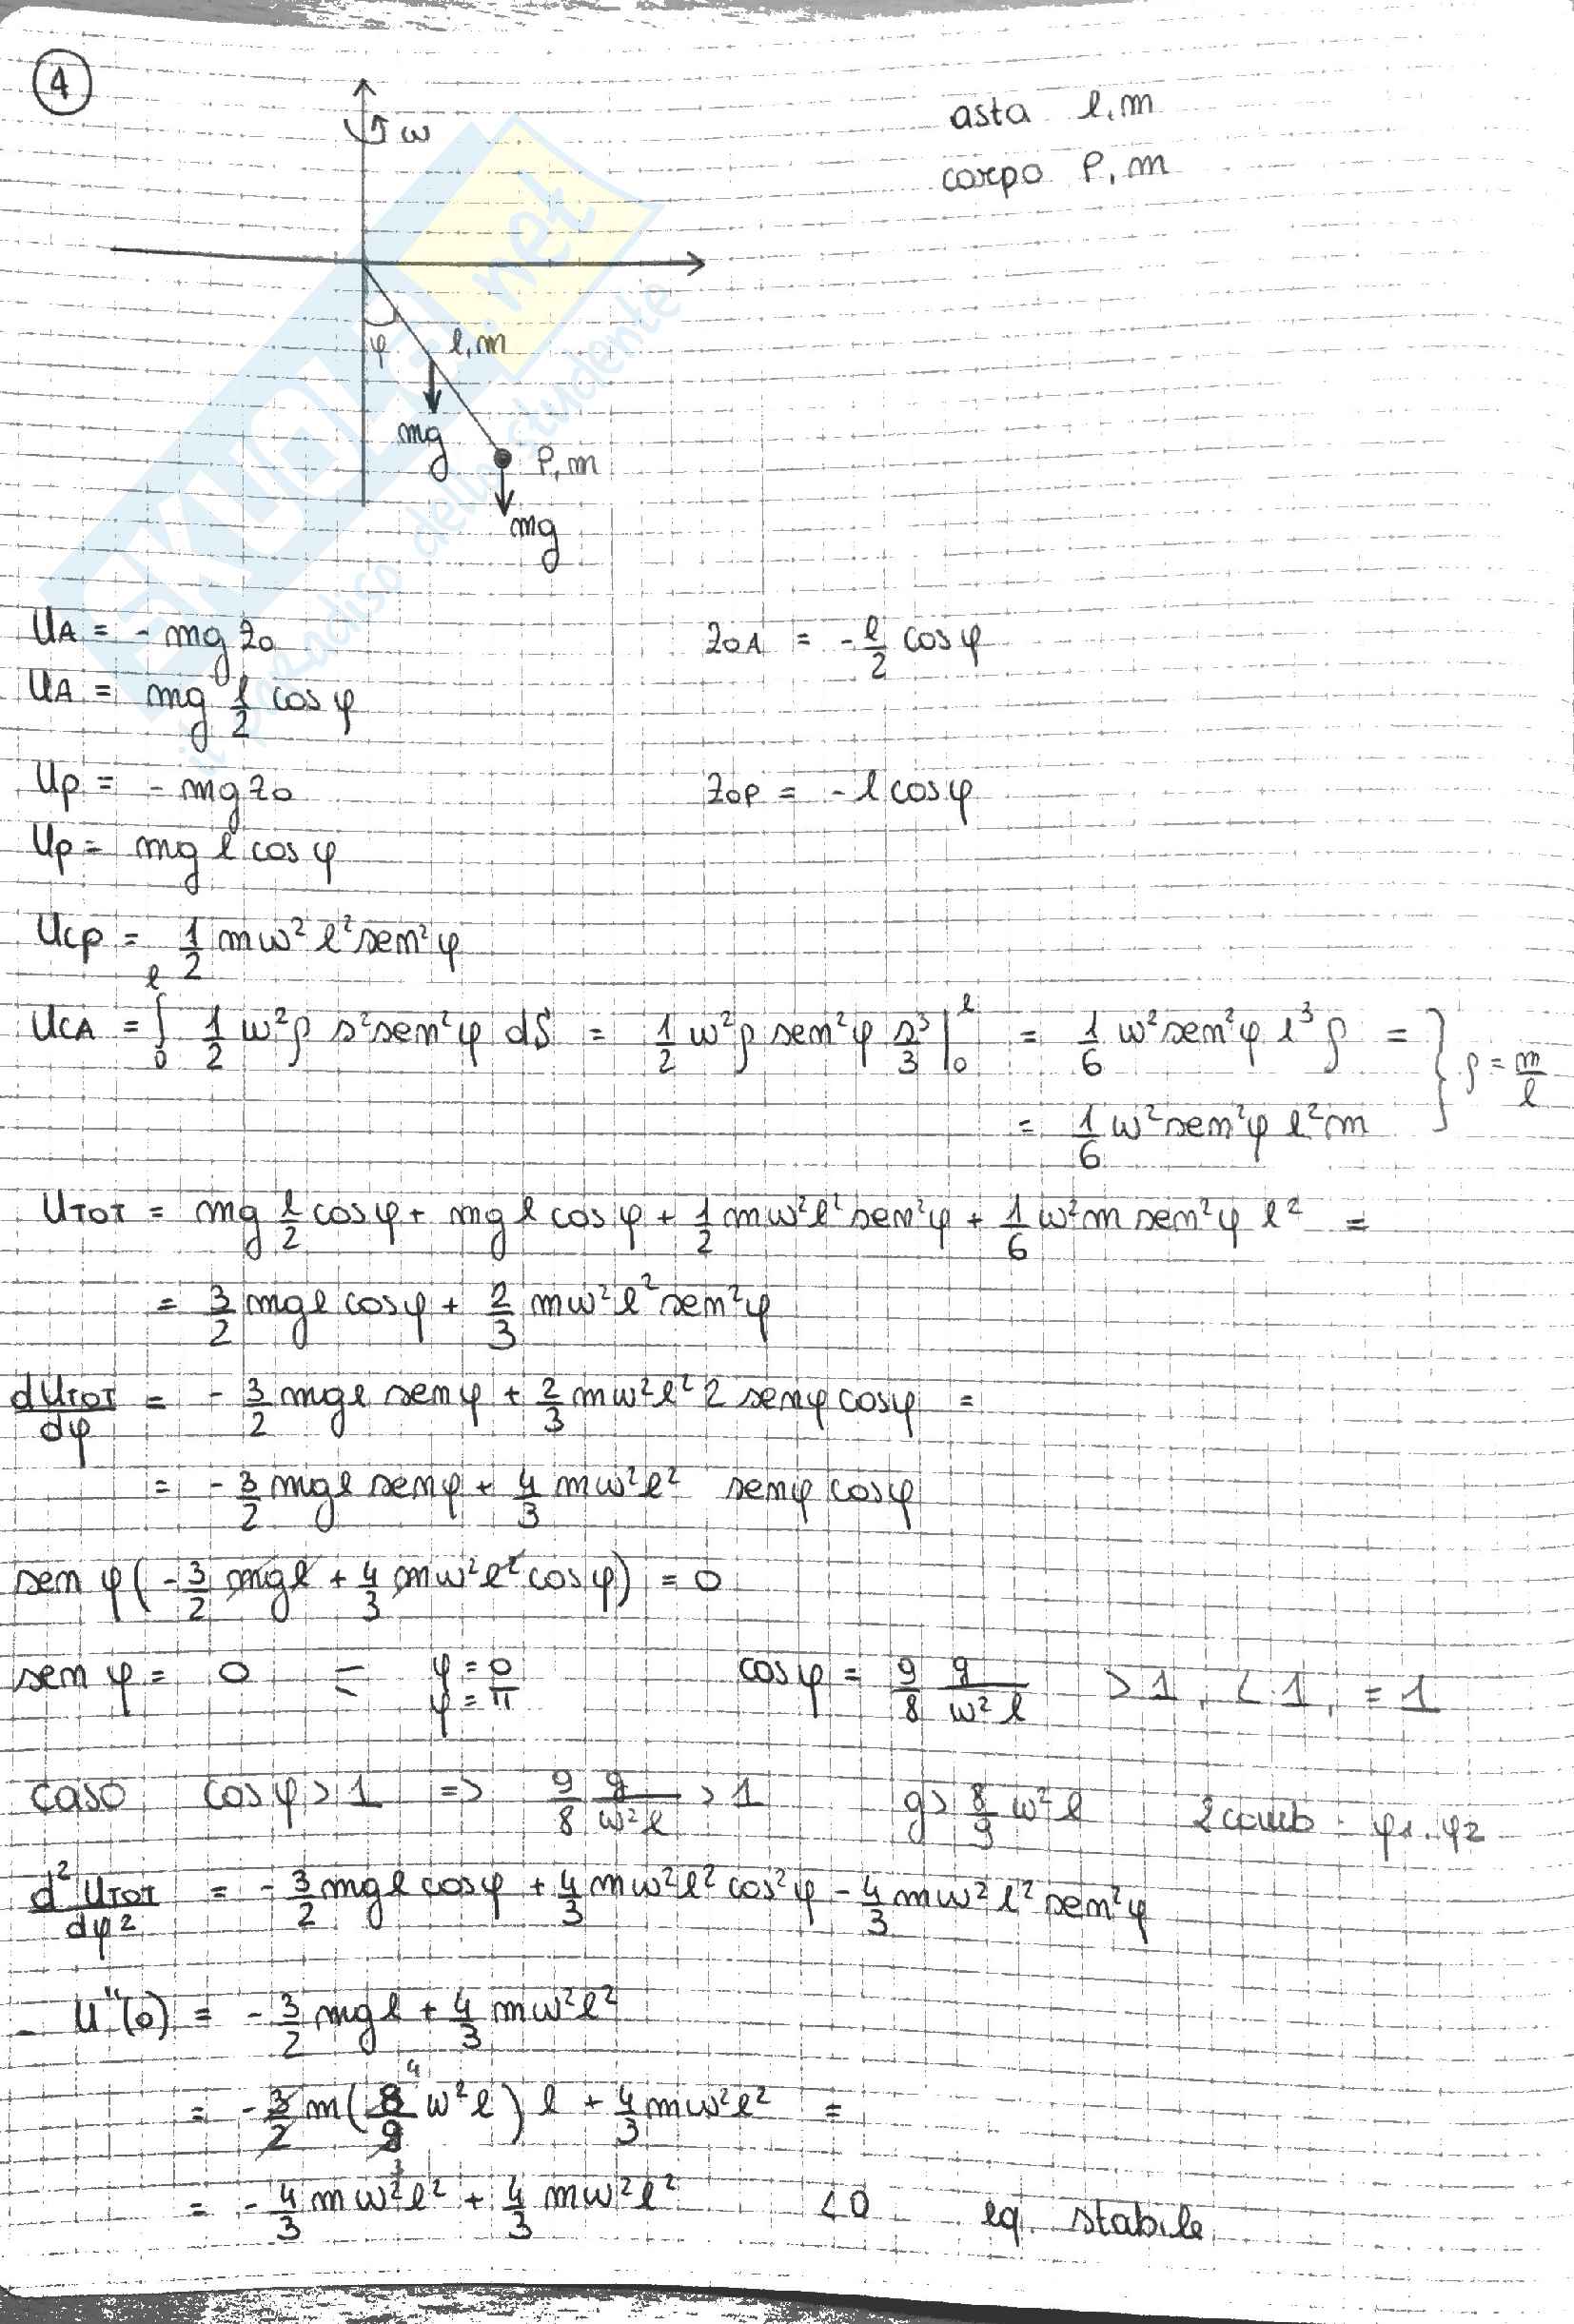 4
ω
asta l, m
corpo P, m
φ
l, m
mg
P, m
mg
SKUOLA.net
il paradiso dello studente
U_A = - mg z_0    z_{0A} = - l/2 cos φ
U_A = mg l/2 cos φ
U_P = - mg z_0    z_{0P} = - l cos φ
U_P = mg l cos φ
U_{CP} = 1/2 mω² l² sen²φ
U_{CA} = ∫_0^l 1/2 ω² ρ s² sen²φ dS = 1/2 ω² ρ sen²φ s³/3 |_0^l = 1/6 ω² sen²φ l³ ρ = } ρ = m/l
= 1/6 ω² sen²φ l² m
U_{TOT} = mg l/2 cos φ + mg l cos φ + 1/2 mω² l² sen²φ + 1/6 ω² m sen²φ l² =
= 3/2 mgl cos φ + 2/3 mω² l² sen²φ
dU_{TOT}/dφ = - 3/2 mgl sen φ + 2/3 mω² l² 2 sen φ cos φ =
= - 3/2 mgl sen φ + 4/3 mω² l² sen φ cos φ
sen φ (- 3/2 mgl + 4/3 mω² l² cos φ) = 0
sen φ = 0    φ = 0    φ = π    cos φ = 9/8 g/(ω² l) > 1, < 1, = 1
caso cos φ > 1 => 9/8 g/(ω² l) > 1    g > 8/9 ω² l    2 comb φ1, φ2
d² U_{TOT}/dφ² = - 3/2 mgl cos φ + 4/3 mω² l² cos²φ - 4/3 mω² l² sen²φ
- U''(0) = - 3/2 mgl + 4/3 mω² l²
= - 3/2 m (8/9 ω² l) l + 4/3 mω² l² =
= - 4/3 mω² l² + 4/3 mω² l²    < 0    eq. stabile